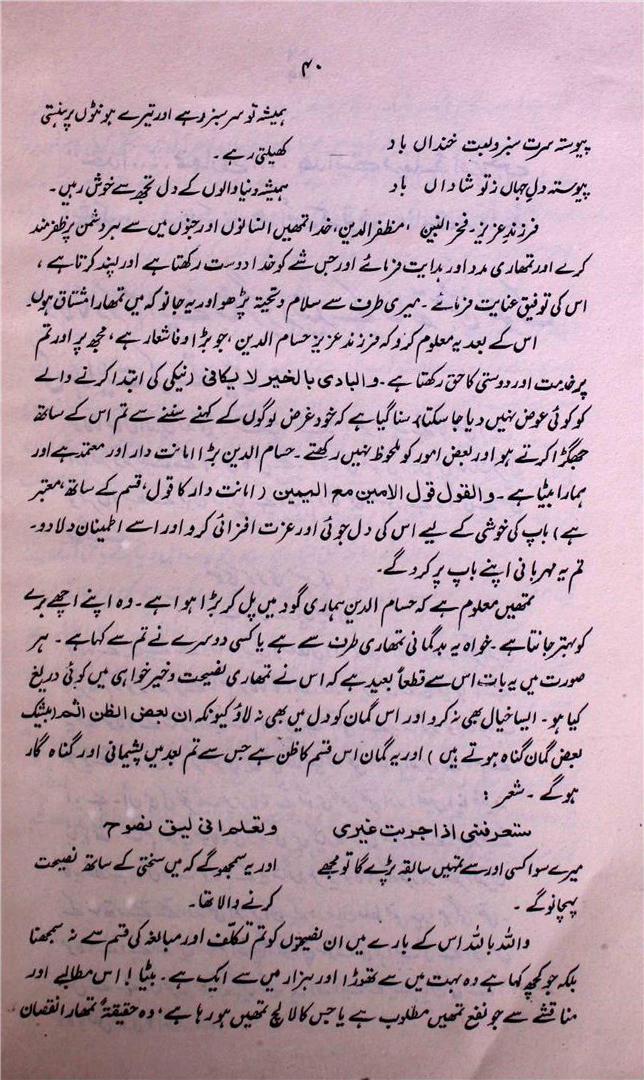 ۴۰
ہمیشہ تو سرسبز رہے اور تیرے ہونٹوں پر ہنسی
پیوستہ سرت سبز و لبت خنداں باد
کھیلتی رہے۔
پیوستہ دل جہاں ز تو شاداں باد
ہمیشہ دنیا والوں کے دل تجھ سے خوش رہیں۔
فرزند عزیز۔ فخر النبین، مظفر الدین، خدا تمھیں انسانوں اور جنوں میں سے ہر دشمن پر ظفر مند
کرے اور تمھاری مدد اور ہدایت فرمائے اور جس شے کو خدا دوست رکھتا ہے اور پسند کرتا ہے،
اس کی توفیق عنایت فرمائے۔ میری طرف سے سلام و تحیۃ پڑھو اور یہ جانو کہ میں تمھارا مشتاق ہوں۔
اس کے بعد یہ معلوم کرو کہ فرزند عزیز حسام الدین، جو بڑا وفا شعار ہے، مجھ پر اور تم
پر خدمت اور دوستی کا حق رکھتا ہے۔ والبادی بالخیر لا یکافی (نیکی کی ابتدا کرنے والے
کو کوئی عوض نہیں دیا جا سکتا) سنا گیا ہے کہ خود غرض لوگوں کے کہنے سننے سے تم اس کے ساتھ
جھگڑا کرتے ہو اور بعض امور کو ملحوظ نہیں رکھتے۔ حسام الدین بڑا امانت دار اور معتمد ہے اور
ہمارا بیٹا ہے۔ والقول قول الامین مع الیمین (امانت دار کا قول، قسم کے ساتھ، معتبر
ہے) باپ کی خوشی کے لیے اس کی دل جوئی اور عزت افزائی کرو اور اسے اطمینان دلا دو۔
تم یہ مہربانی اپنے باپ پر کرو گے۔
تمھیں معلوم ہے کہ حسام الدین ہماری گود میں پل کر بڑا ہوا ہے۔ وہ اپنے اچھے برے
کو بہتر جانتا ہے۔ خواہ یہ بدگمانی تمھاری طرف سے ہے یا کسی دوسرے نے تم سے کہا ہے۔ ہر
صورت میں یہ بات اس سے قطعاً بعید ہے کہ اس نے تمھاری نصیحت و خیر خواہی میں کوئی دریغ
کیا ہو۔ ایسا خیال بھی نہ کرو اور اس گمان کو دل میں بھی نہ لاؤ کیونکہ ان بعض الظن اثم (بیشک
بعض گمان گناہ ہوتے ہیں) اور یہ گمان اس قسم کا ظن ہے جس سے تم بعد میں پشیمانی اور گناہ گار
ہو گے۔ شعر:
ستعرفنی اذا جربت غیری وتعلم انی لیق نصوح
میرے سوا کسی اور سے تمہیں سابقہ پڑے گا تو مجھے اور یہ سمجھو گے کہ میں سختی کے ساتھ نصیحت
پہچانو گے۔ کرنے والا تھا۔
واللہ باللہ اس کے بارے میں ان نصیحتوں کو تم تکلف اور مبالغہ کی قسم سے نہ سمجھنا
بلکہ جو کچھ کہا ہے وہ بہت میں سے تھوڑا اور ہزار میں سے ایک ہے۔ بیٹا! اس مطالبے اور
مناقشے سے جو نفع تمھیں مطلوب ہے یا جس کا لالچ تمھیں ہو رہا ہے، وہ حقیقۃً تمھارا نقصان